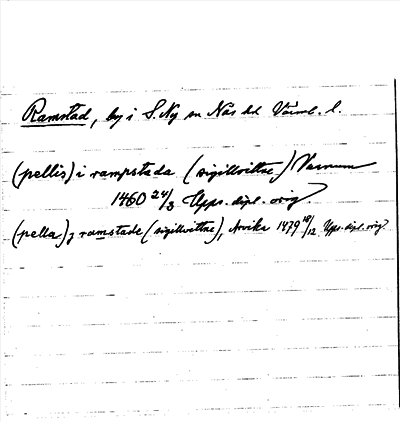 Ramstad, by i S. Ny sn Näs hd Värml. l.
(pellis) i rampstada (sigillvittne) Varnum
1460 24/3 Upps. dipl. orig.
(pella) j ramstade (sigillvittne), Arvika 1479 18/12 Upps. dipl. orig.